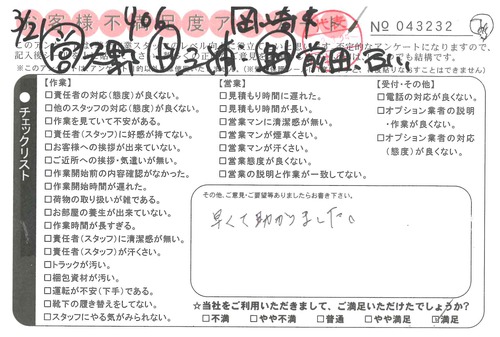 お客様不満足度ア
No 043232
チェックリスト
【作業】
□責任者の対応(態度)が良くない。
□他のスタッフの対応(態度)が良くない。
□作業を見ていて不安がある。
□責任者(スタッフ)に好感が持てない。
□お客様への挨拶が出来ていない。
□ご近所への挨拶・気遣いが無い。
□作業開始前の内容確認がなかった。
□作業開始時間が遅れた。
□荷物の取り扱いが雑である。
□お部屋の養生が出来ていない。
□作業時間が長すぎる。
□責任者(スタッフ)に清潔感が無い。
□責任者(スタッフ)が汗くさい。
□トラックが汚い。
□梱包資材が汚い。
□運転が不安(下手)である。
□靴下の履き替えをしてない。
□スタッフにやる気がみられない。
【営業】
□見積もり時間に遅れた。
□見積もり時間が長い。
□営業マンに清潔感が無い。
□営業マンが煙草くさい。
□営業マンが汗くさい。
□営業態度が良くない。
□営業の説明と作業が一致してない。
【受付・その他】
□電話の対応が良くない。
□オプション業者の説明
・作業が良くない。
□オプション業者の対応
(態度)が良くない。
その他、ご意見・ご要望等ありましたらお書き下さい。
早くて助かりました。
☆当社をご利用いただきまして、ご満足いただけたでしょうか?
□不満 □やや不満 □普通 □やや満足 ☑満足